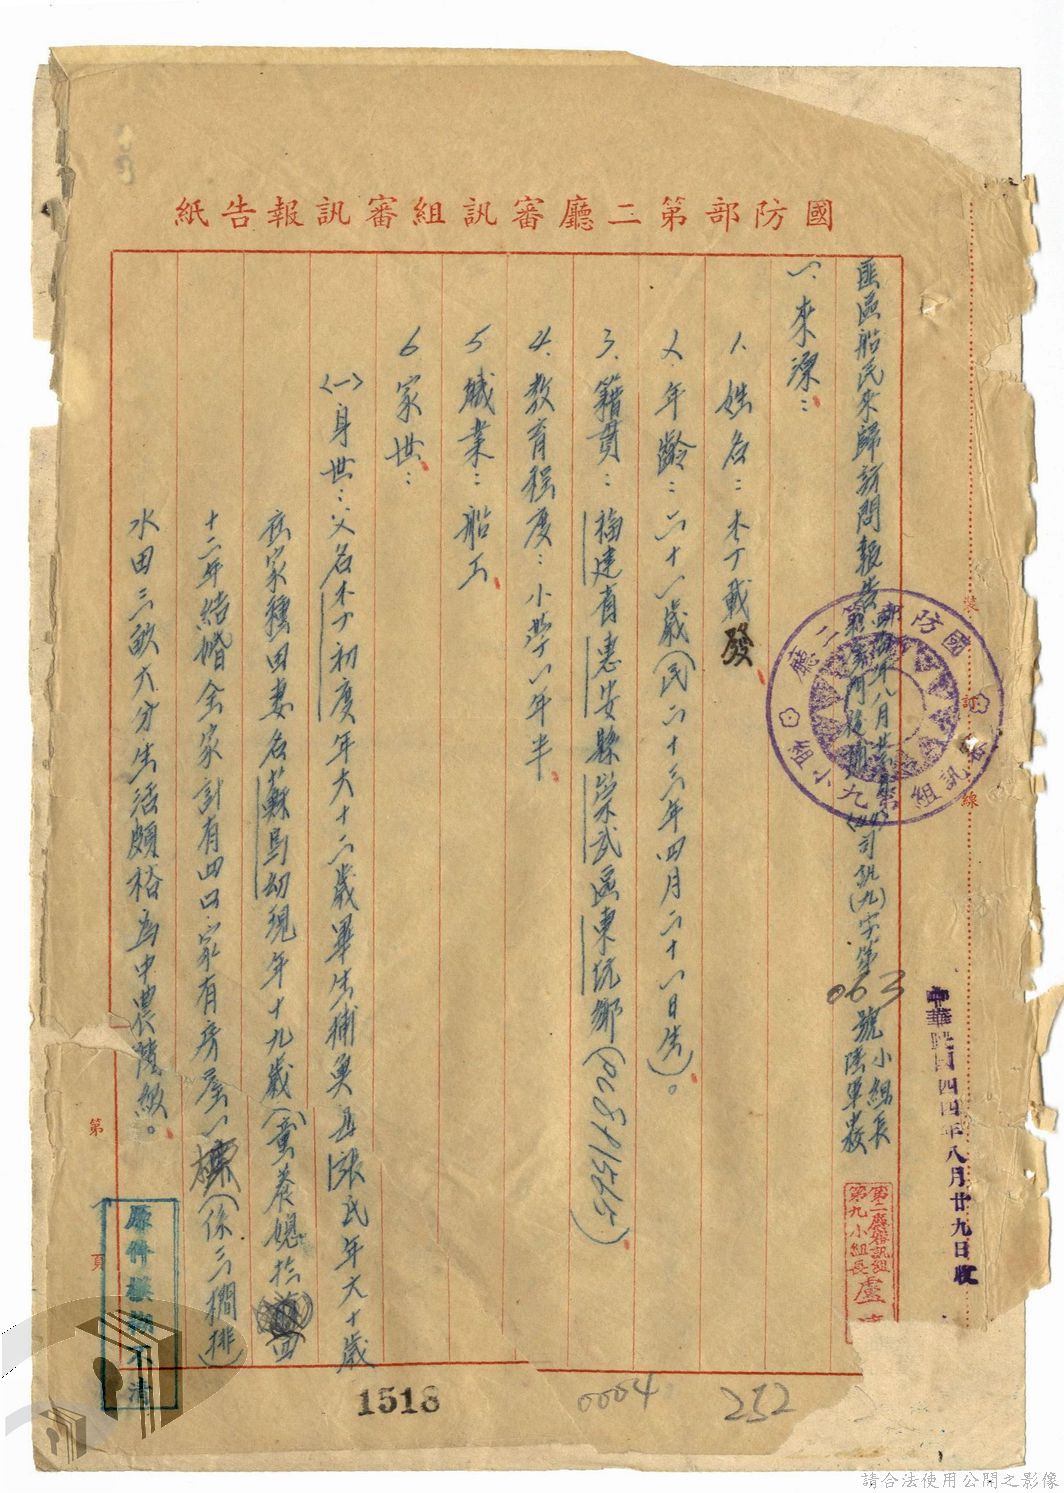 國防部第二廳審訊組審訊報告紙
匪區船民來歸訪問報告
(44)司訊(九)字第063號
小組長
陸軍
一、來源：
1. 姓名：木丁載發
2. 年齡：二十一歲(民二十三年四月二十一日生)。
3. 籍貫：福建省惠安縣崇武區東坑鄉
4. 教育程度：小學一年半
5. 職業：船工
6. 家世：
(一)身世：父名木丁初度年六十二歲畢生捕魚母張氏年六十歲
在家種田妻名蘇烏幼現年十九歲(童養媳
十二年結婚全家計有四口家有房屋一棟(係三櫚排)
水田三畝六分生活頗裕為中農階級。
國防部第二廳
審訊組第九小組
裝
訂
線
中華民國四四年八月廿九日收
第二廳審訊組
第九小組長
盧
第
頁
原件模糊不清
1518
0004
252
請合法使用公開之影像